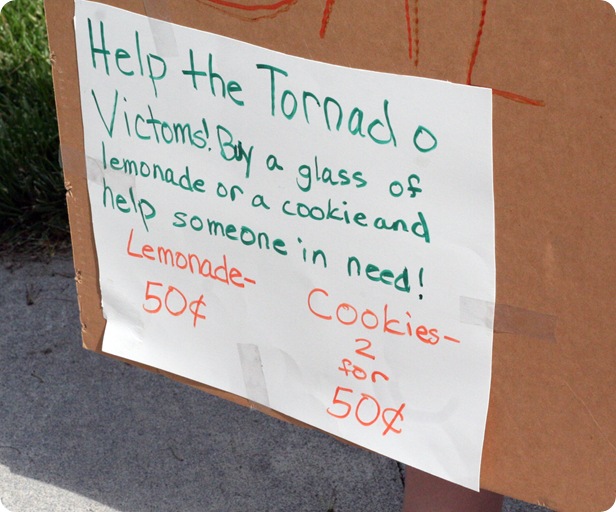 Help the Tornado
Victoms! Buy a glass of
lemonade or a cookie and
help someone in need!
Lemonade-
50¢
Cookies-
2
for
50¢